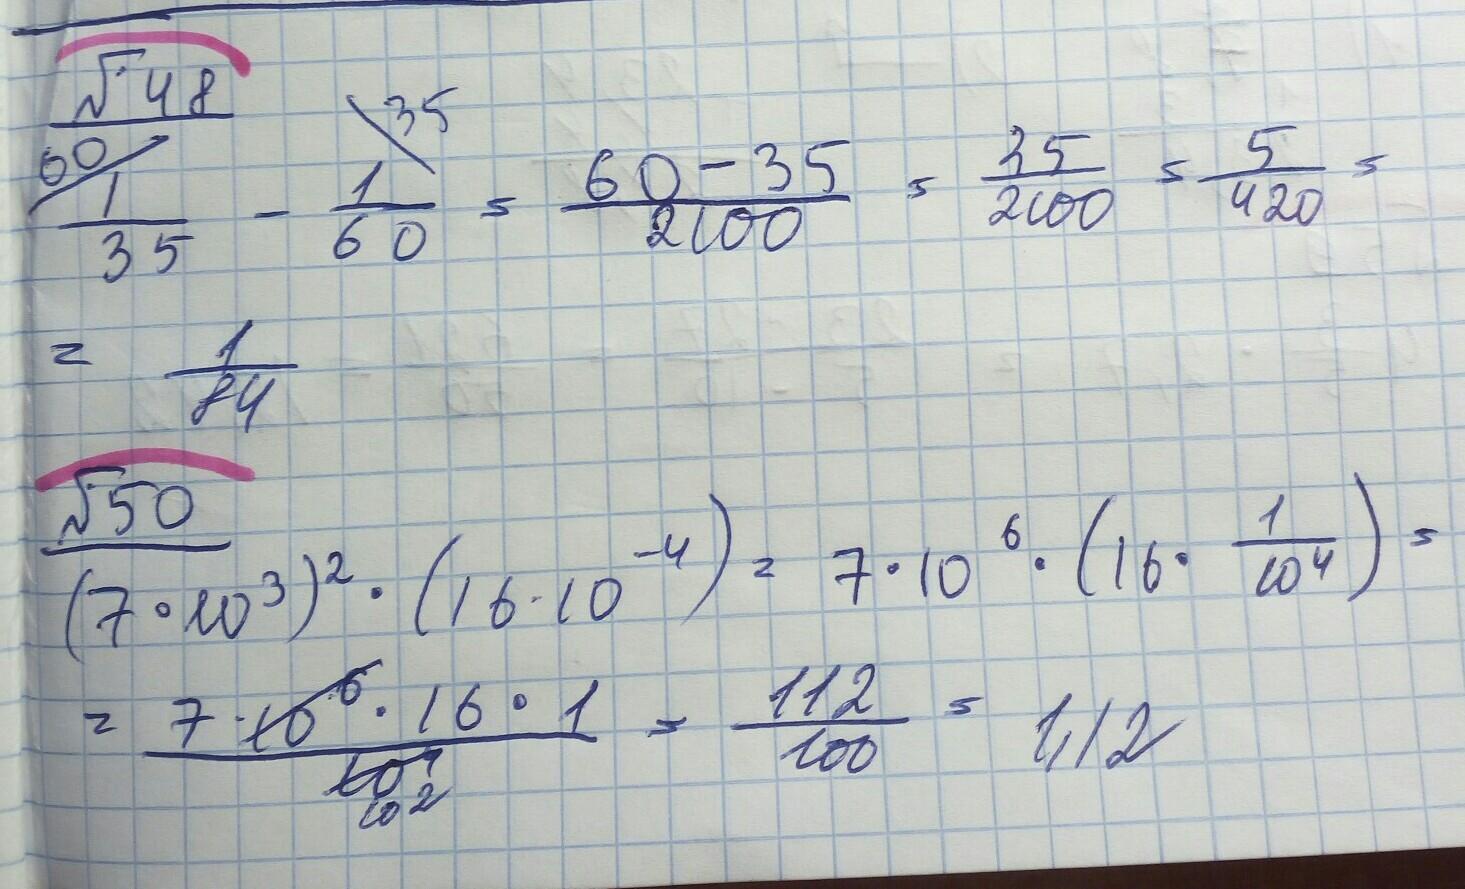 √48
60 35
1/35 - 1/60 = (60-35)/2100 = 35/2100 = 5/420 =
= 1/84
√50
(7·10³)²·(16·10⁻⁴) = 7·10⁶·(16·1/10⁴) =
= (7·10⁶·16·1)/10⁴ = 112/100 = 1,12
10²